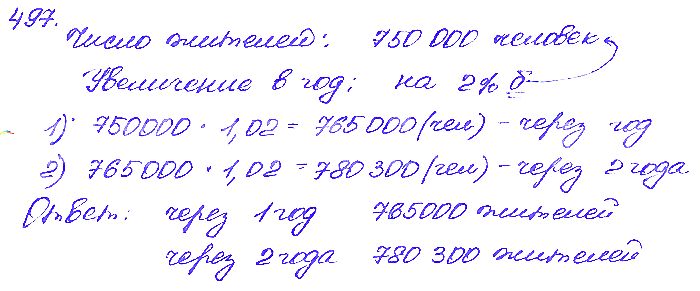 497.
Число жителей: 750 000 человек
Увеличение в год: на 2% б
1) 750000 · 1,02 = 765000 (чел) - через год
2) 765000 · 1,02 = 780300 (чел) - через 2 года
Ответ: через 1 год 765000 жителей
через 2 года 780 300 жителей